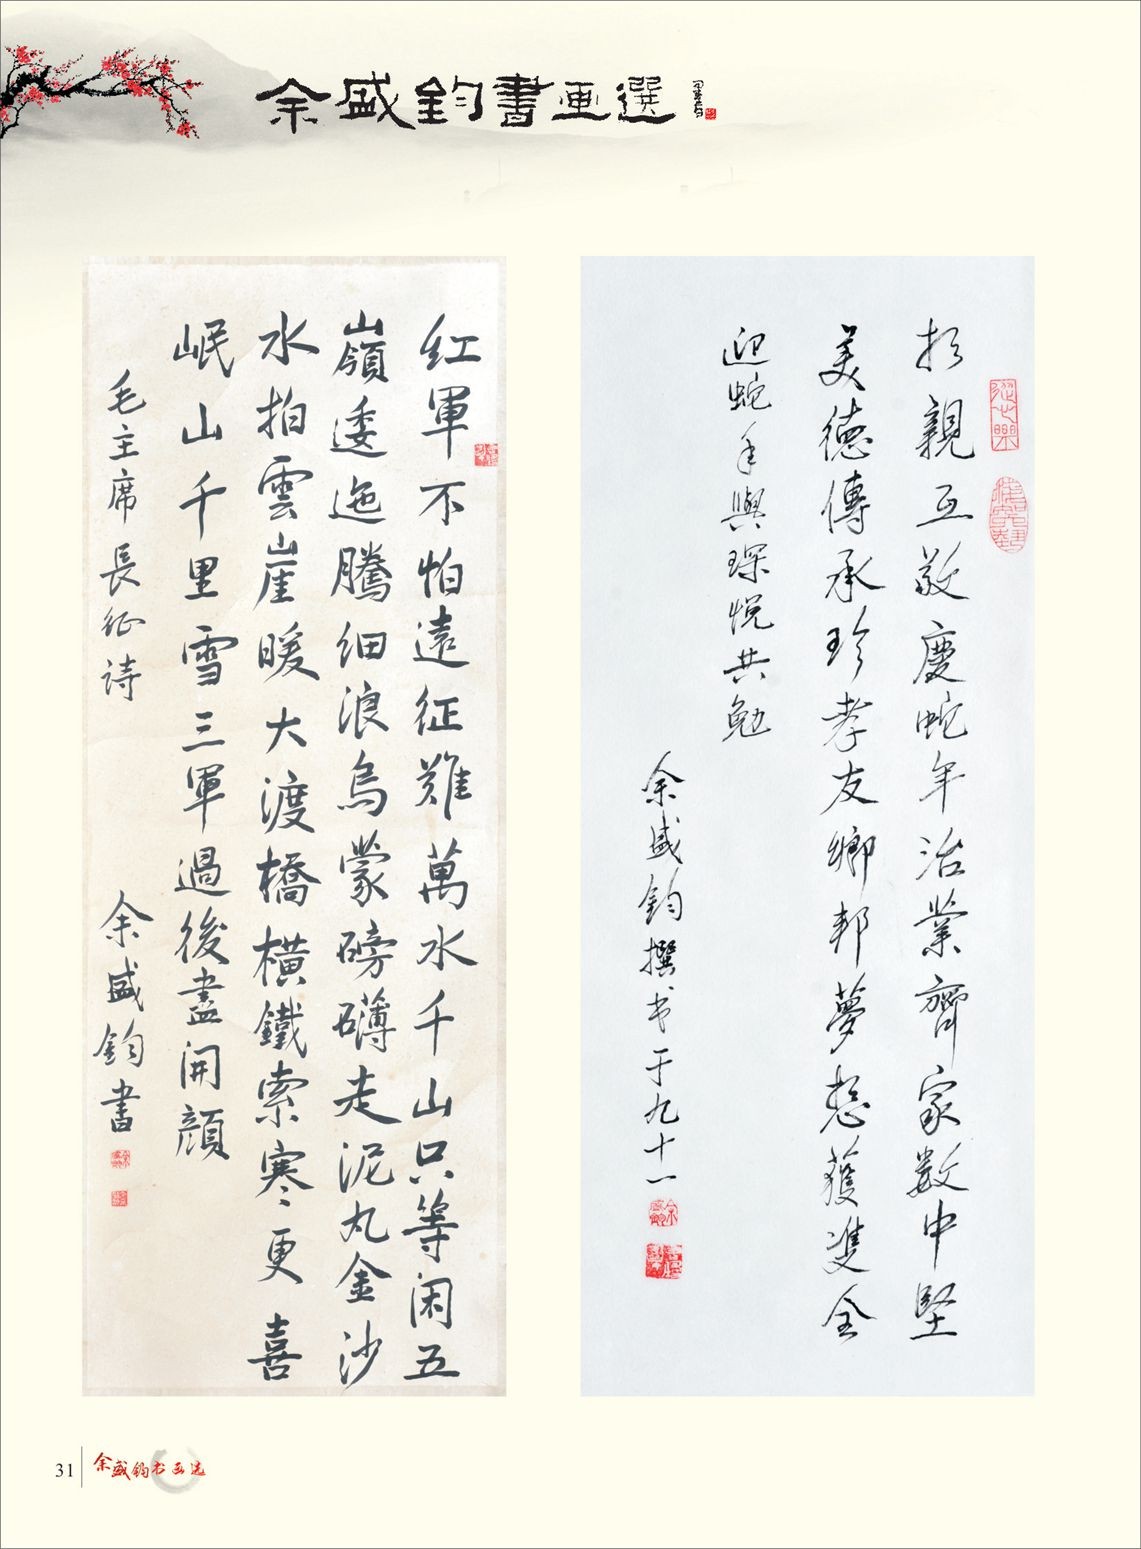 余盛鈞書画選
紅軍不怕遠征難萬水千山只等闲五
嶺逶迤騰细浪烏蒙磅礴走泥丸金沙
水拍雲崖暖大渡橋橫鐵索寒更喜
岷山千里雪三軍過後盡開顔
毛主席長征诗
余盛鈞書
親互敬慶蛇年治業齊家数中堅
美德傳承珍孝友鄉邦夢想獲雙全
迎蛇年與琛悦共勉
余盛鈞撰书于九十一
31
余盛钧书画选